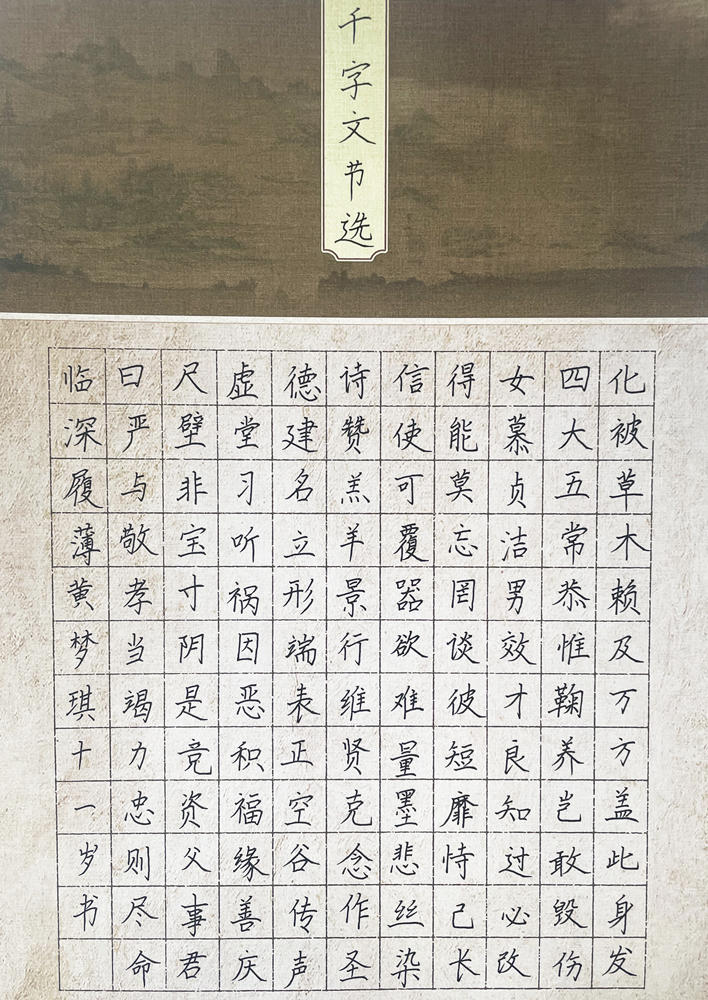 千字文节选
化被草木赖及万方盖此身发
四大五常恭惟鞠养岂敢毁伤
女慕贞洁男效才良知过必改
得能莫忘罔谈彼短靡恃己长
信使可覆器欲难量墨悲丝染
诗赞羔羊景行维贤克念作圣
德建名立形端表正空谷传声
虚堂习听祸因恶积福缘善庆
尺璧非宝寸阴是竞资父事君
曰严与敬孝当竭力忠则尽命
临深履薄黄梦琪十一岁书